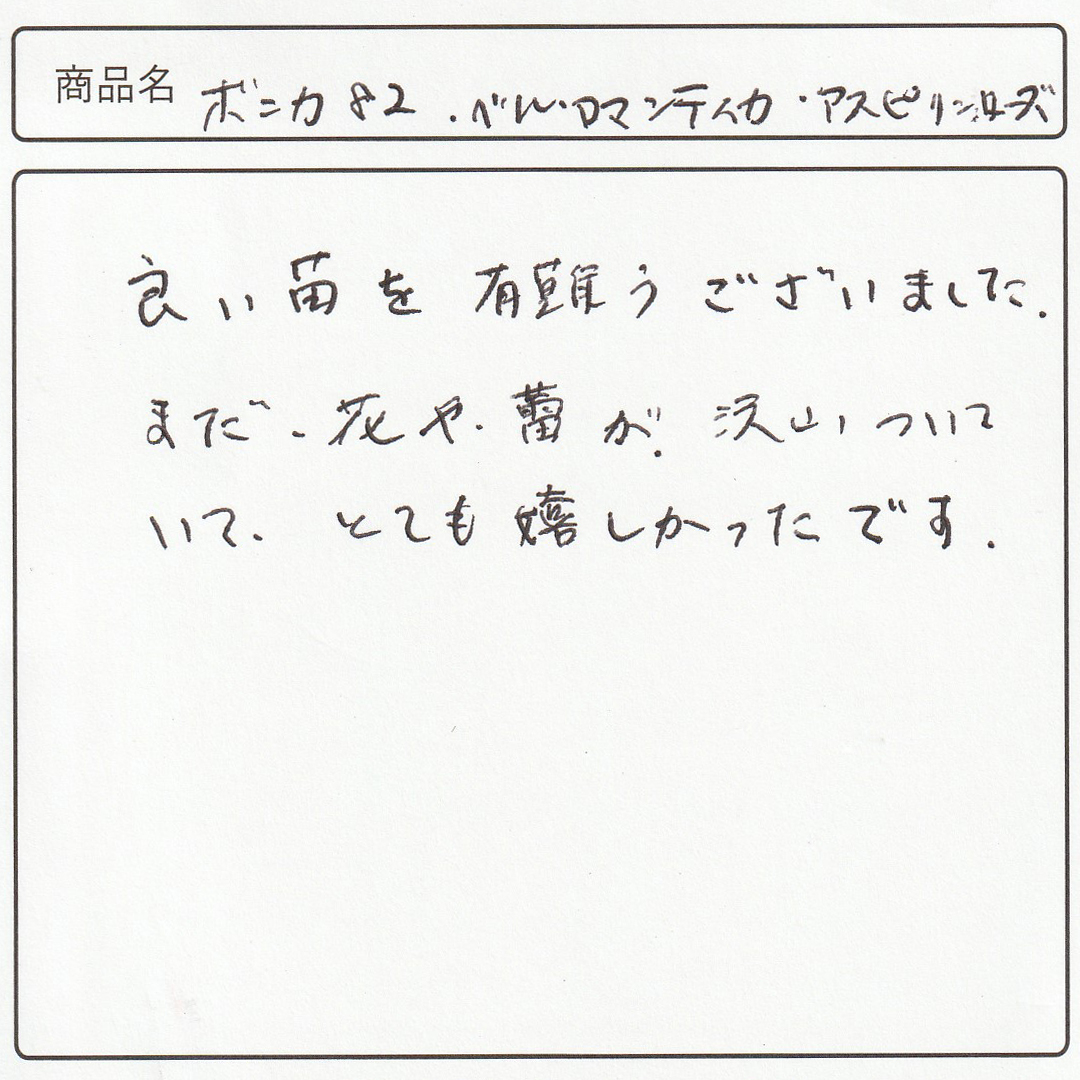 商品名 ボニカ82.ベル・ロマンティカ・アスピリンローズ
良い苗を有難うございました.
まだ、花や蕾が沢山ついて
いて、とても嬉しかったです.